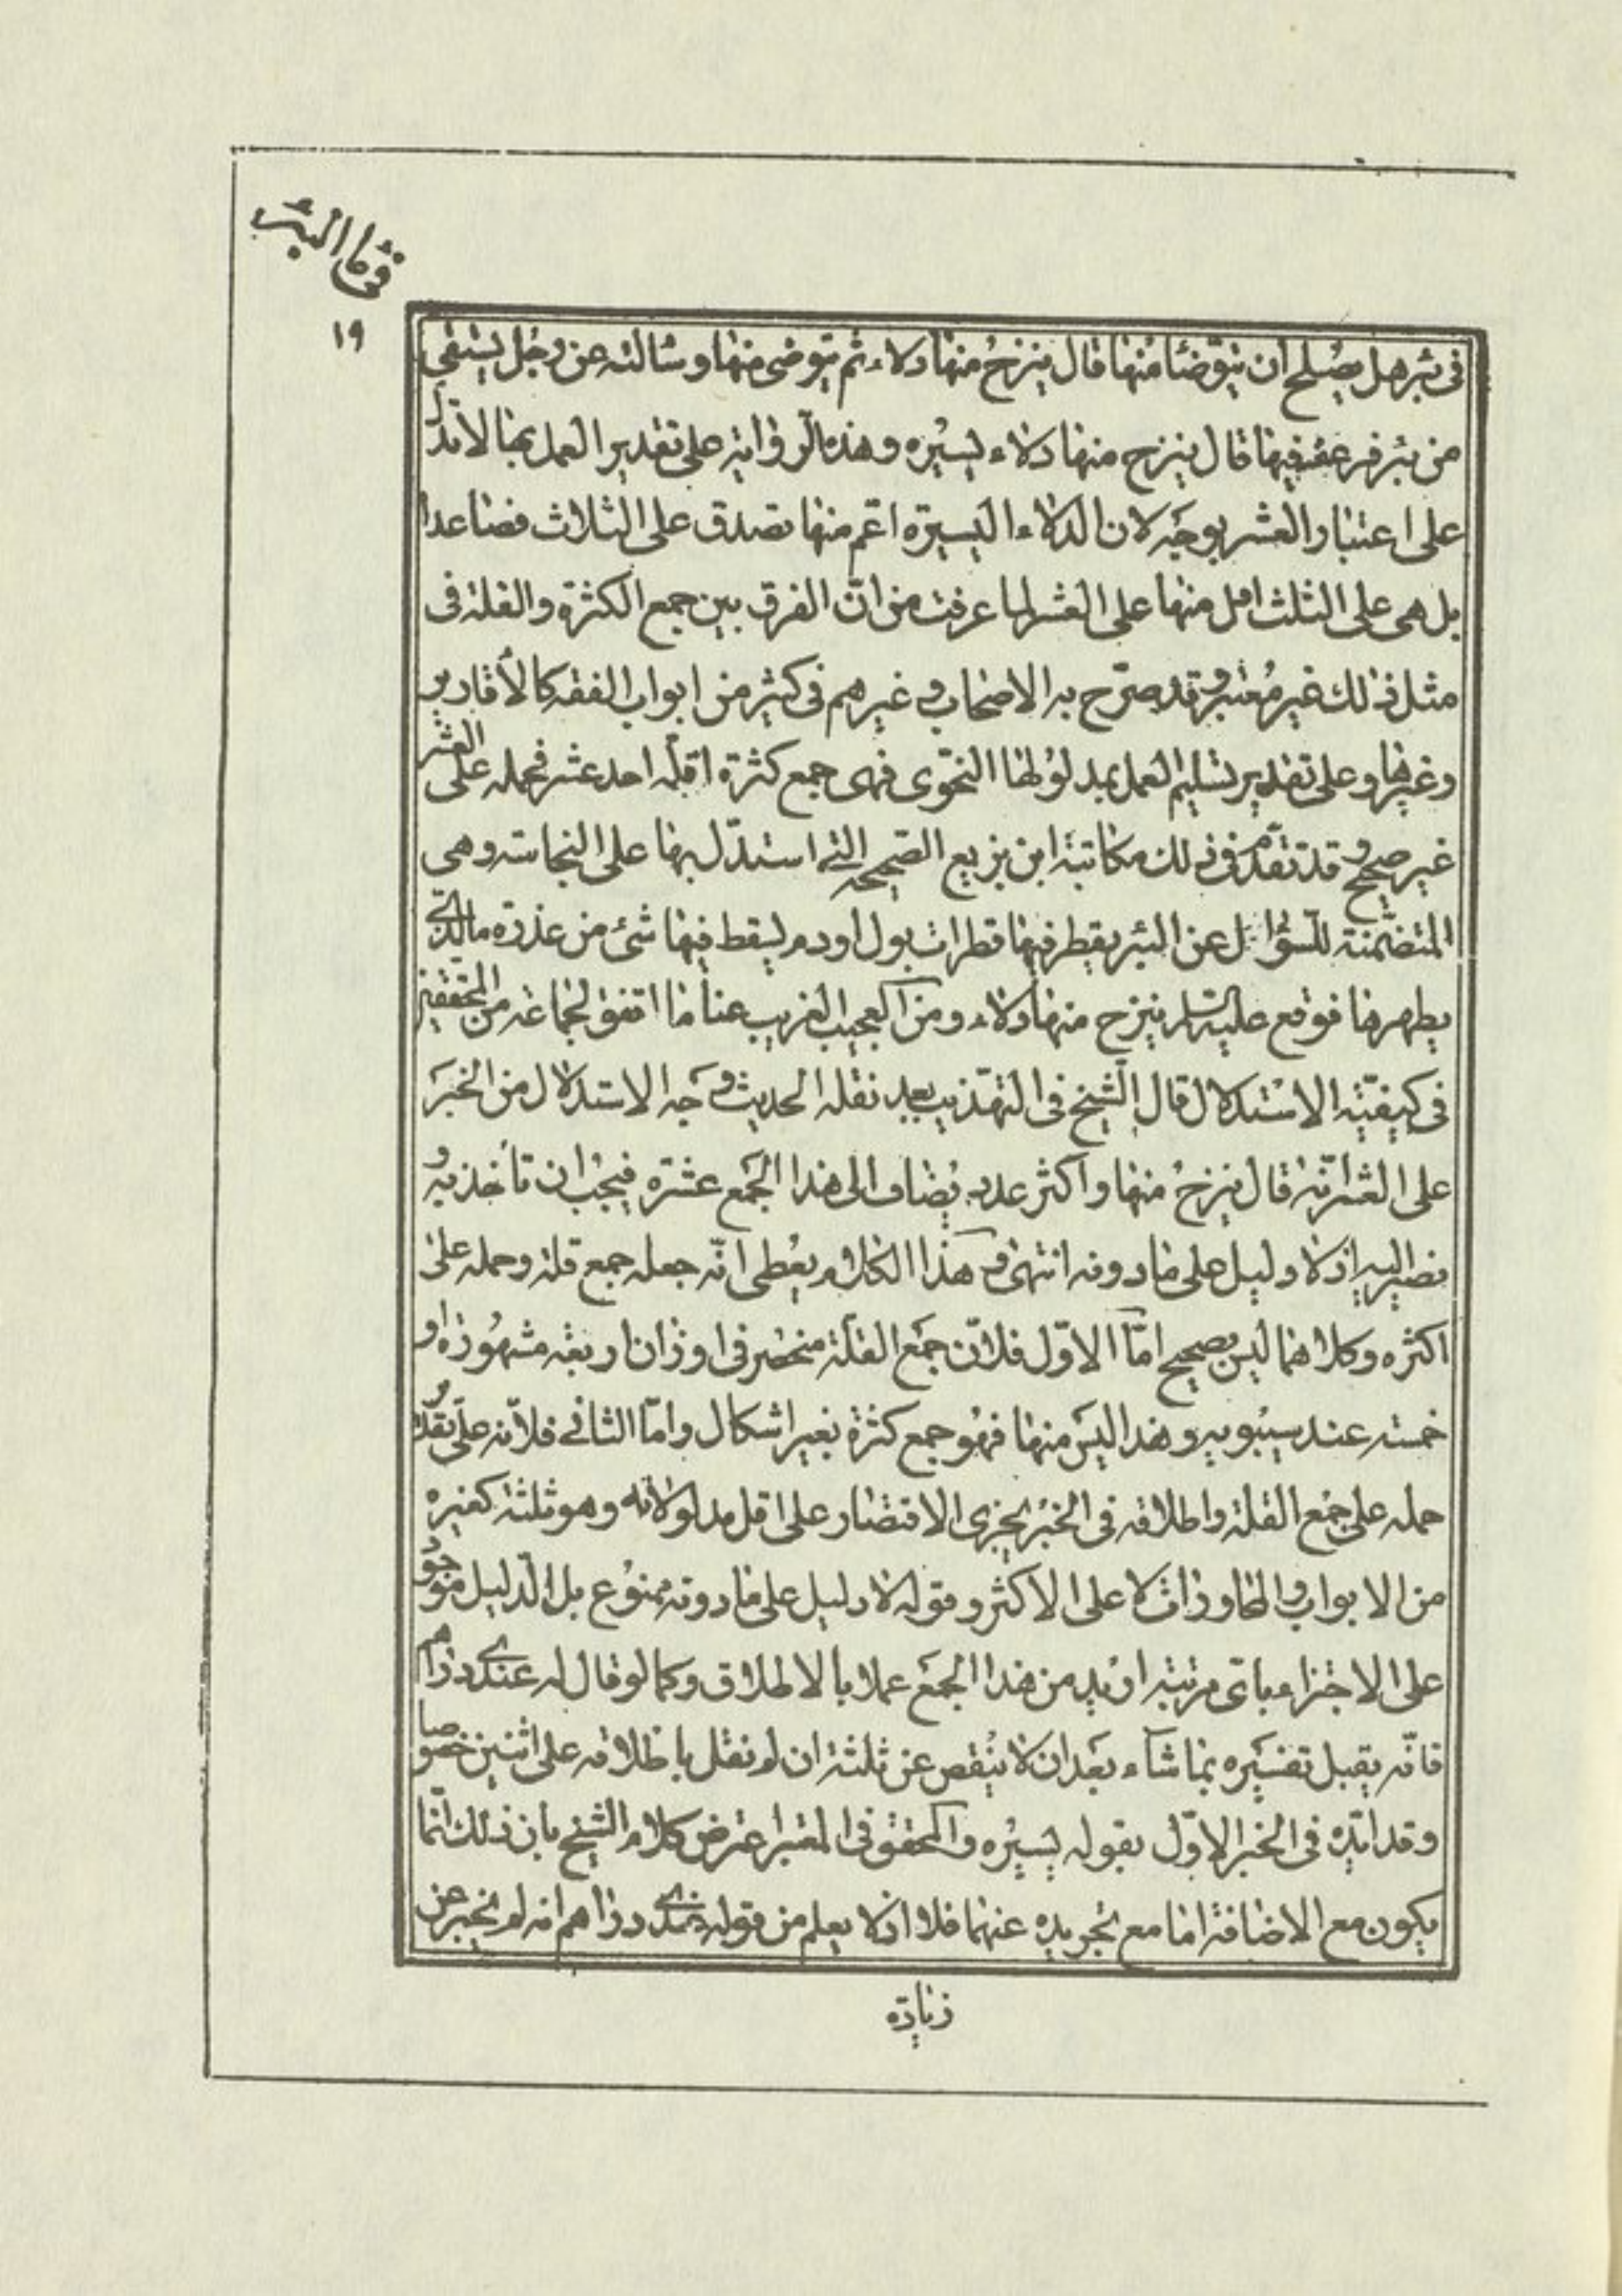 في ماء البئر
١٩
فى بئر هل يصلح ان يتوضأ منها قال ينزح منها دلاء ثم يتوضى منها وسالته عن رجل يستقى
من بئر فرعف فيها قال ينزح منها دلاء يسيره وهذه الرواية على تقدير العمل بها لا تدل
على اعتبار العشر بوجه لان الدلاء اليسيرة اعم منها تصدق على الثلاث فصاعدا
بل هى على الثلث ادل منها على العشر لما عرفت من انّ الفرق بين جمع الكثرة والقلة فى
مثل ذلك غير معتبر وقد صرّح به الاصحاب وغيرهم فى كثير من ابواب الفقه كالأقارير
وغيرها وعلى تقدير تسليم العمل بمدلولها النحوى فهى جمع كثرة اقلّه احد عشر فحمله على العشر
غير صحيح وقد تقدّم فى ذلك مكاتبة ابن بزيع الصّحيحه التى استدلّ بها على النجاسة وهى
المتضمّنة للسؤال عن البئر يقطر فيها قطرات بول اودم يسقط فيها شئ من عذرة ما الذى
يطهرها فوقع عليه السلم ينزح منها دلاء ومن العجيب الغريب هنا ما اتفق لجماعة من المحققين
فى كيفيّة الاستدلال قال الشّيخ فى التهذيب بعد نقله الحديث وجه الاستدلال من الخبر
على العشر انّه قال ينزح منها واكثر عدد يضاف الى هذا الجمع عشرة فيجب ان تأخذ به و
نصير اليه اذ لا دليل على ما دونه انتهى وهذا الكلام يعطى انّه جعله جمع قلة وحمله على
اكثره وكلاهما ليس بصحيح امّا الاوّل فلانّ جمع القلّة منحصر فى اوزان اربعة مشهورة او
خمسة عند سيبويه وهذا ليس منها فهو جمع كثرة بغير اشكال وامّا الثانى فلانّه على تقدير
حمله على جمع القلة واطلاقه فى الخبر يجزى الاقتصار على اقل مدلولاته وهو ثلثة كغيره
من الابواب والمحاورات لا على الاكثر وقوله لا دليل على ما دونه ممنوع بل الدّليل موجود
على الاجتزاء باىّ مرتبة اريد من هذا الجمع عملا بالاطلاق وكما لو قال له عندى دراهم
فانّه يقبل تفسيره بما شاء بعد ان لا ينقص عن ثلثة ان لم نقل باطلاقه على اثنين خصوصا
وقد ايّده فى الخبر الاوّل بقوله يسيره والمحقق فى المعتبر اعترض كلام الشيخ بان ذلك انّما
يكون مع الاضافة اما مع تجريده عنها فلا اذ لا يعلم من قوله عندى دراهم انه لم يخبر عن
زيادة